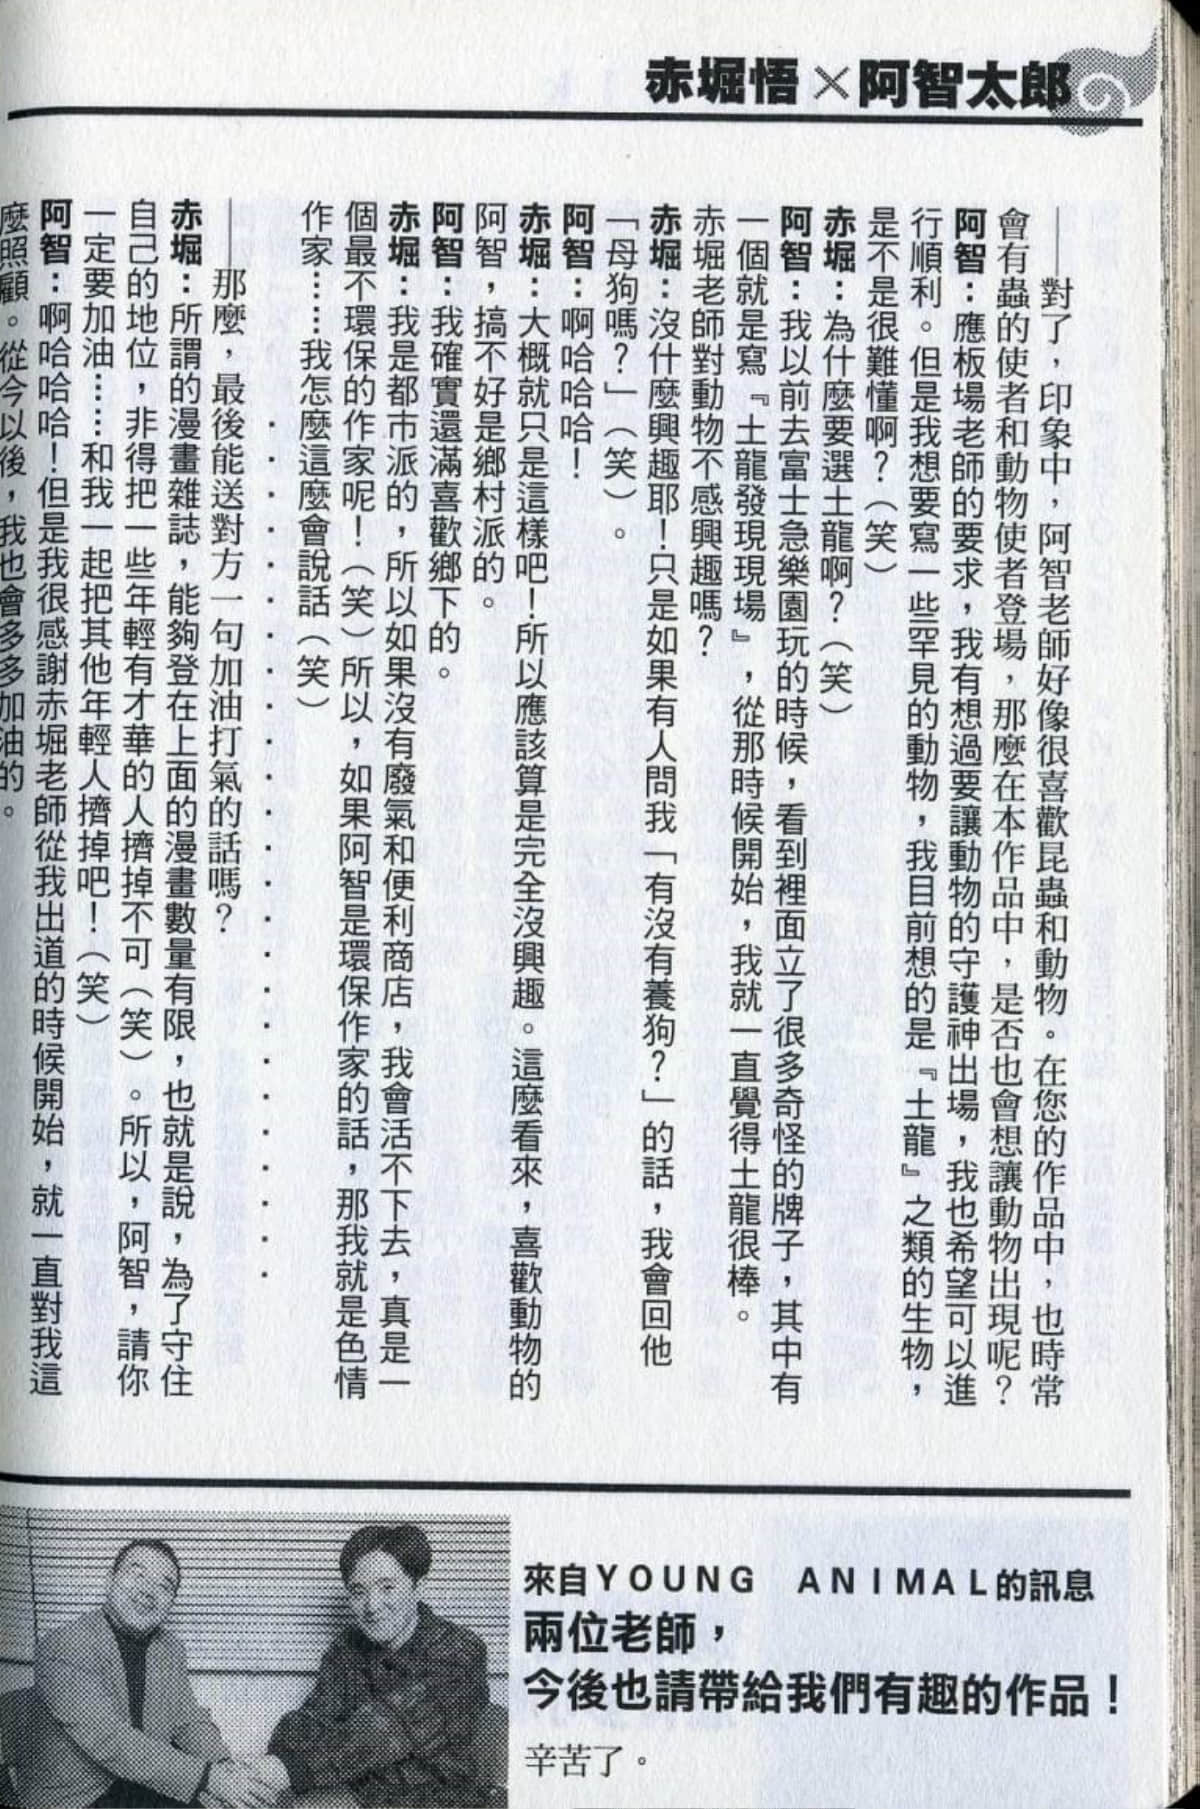 赤堀悟×阿智太郎
——對了，印象中，阿智老師好像很喜歡昆蟲和動物。在您的作品中，也時常
會有蟲的使者和動物使者登場，那麼在本作品中，是否也會想讓動物出現呢？
阿智：應板場老師的要求，我有想過要讓動物的守護神出場，我也希望可以進
行順利。但是我想要寫一些罕見的動物，我目前想的是『土龍』之類的生物，
是不是很難懂啊？（笑）
赤堀：為什麼要選土龍啊？（笑）
阿智：我以前去富士急樂園玩的時候，看到裡面立了很多奇怪的牌子，其中有
一個就是寫『土龍發現現場』，從那時候開始，我就一直覺得土龍很棒。
赤堀老師對動物不感興趣嗎？
赤堀：沒什麼興趣耶！只是如果有人問我「有沒有養狗？」的話，我會回他
「母狗嗎？」（笑）。
阿智：啊哈哈哈！
赤堀：大概就只是這樣吧！所以應該算是完全沒興趣。這麼看來，喜歡動物的
阿智，搞不好是鄉村派的。
阿智：我確實還滿喜歡鄉下的。
赤堀：我是都市派的，所以如果沒有廢氣和便利商店，我會活不下去，真是一
個最不環保的作家呢！（笑）所以，如果阿智是環保作家的話，那我就是色情
作家……我怎麼這麼會說話（笑）
・・・・・・・・・・・・・・・・・・・・・・・・・
——那麼，最後能送對方一句加油打氣的話嗎？
赤堀：所謂的漫畫雜誌，能夠登在上面的漫畫數量有限，也就是說，為了守住
自己的地位，非得把一些年輕有才華的人擠掉不可（笑）。所以，阿智，請你
一定要加油……和我一起把其他年輕人擠掉吧！（笑）
阿智：啊哈哈哈！但是我很感謝赤堀老師從我出道的時候開始，就一直對我這
麼照顧。從今以後，我也會多多加油的。
來自ＹＯＵＮＧ　ＡＮＩＭＡＬ的訊息
兩位老師，
今後也請帶給我們有趣的作品！
辛苦了。